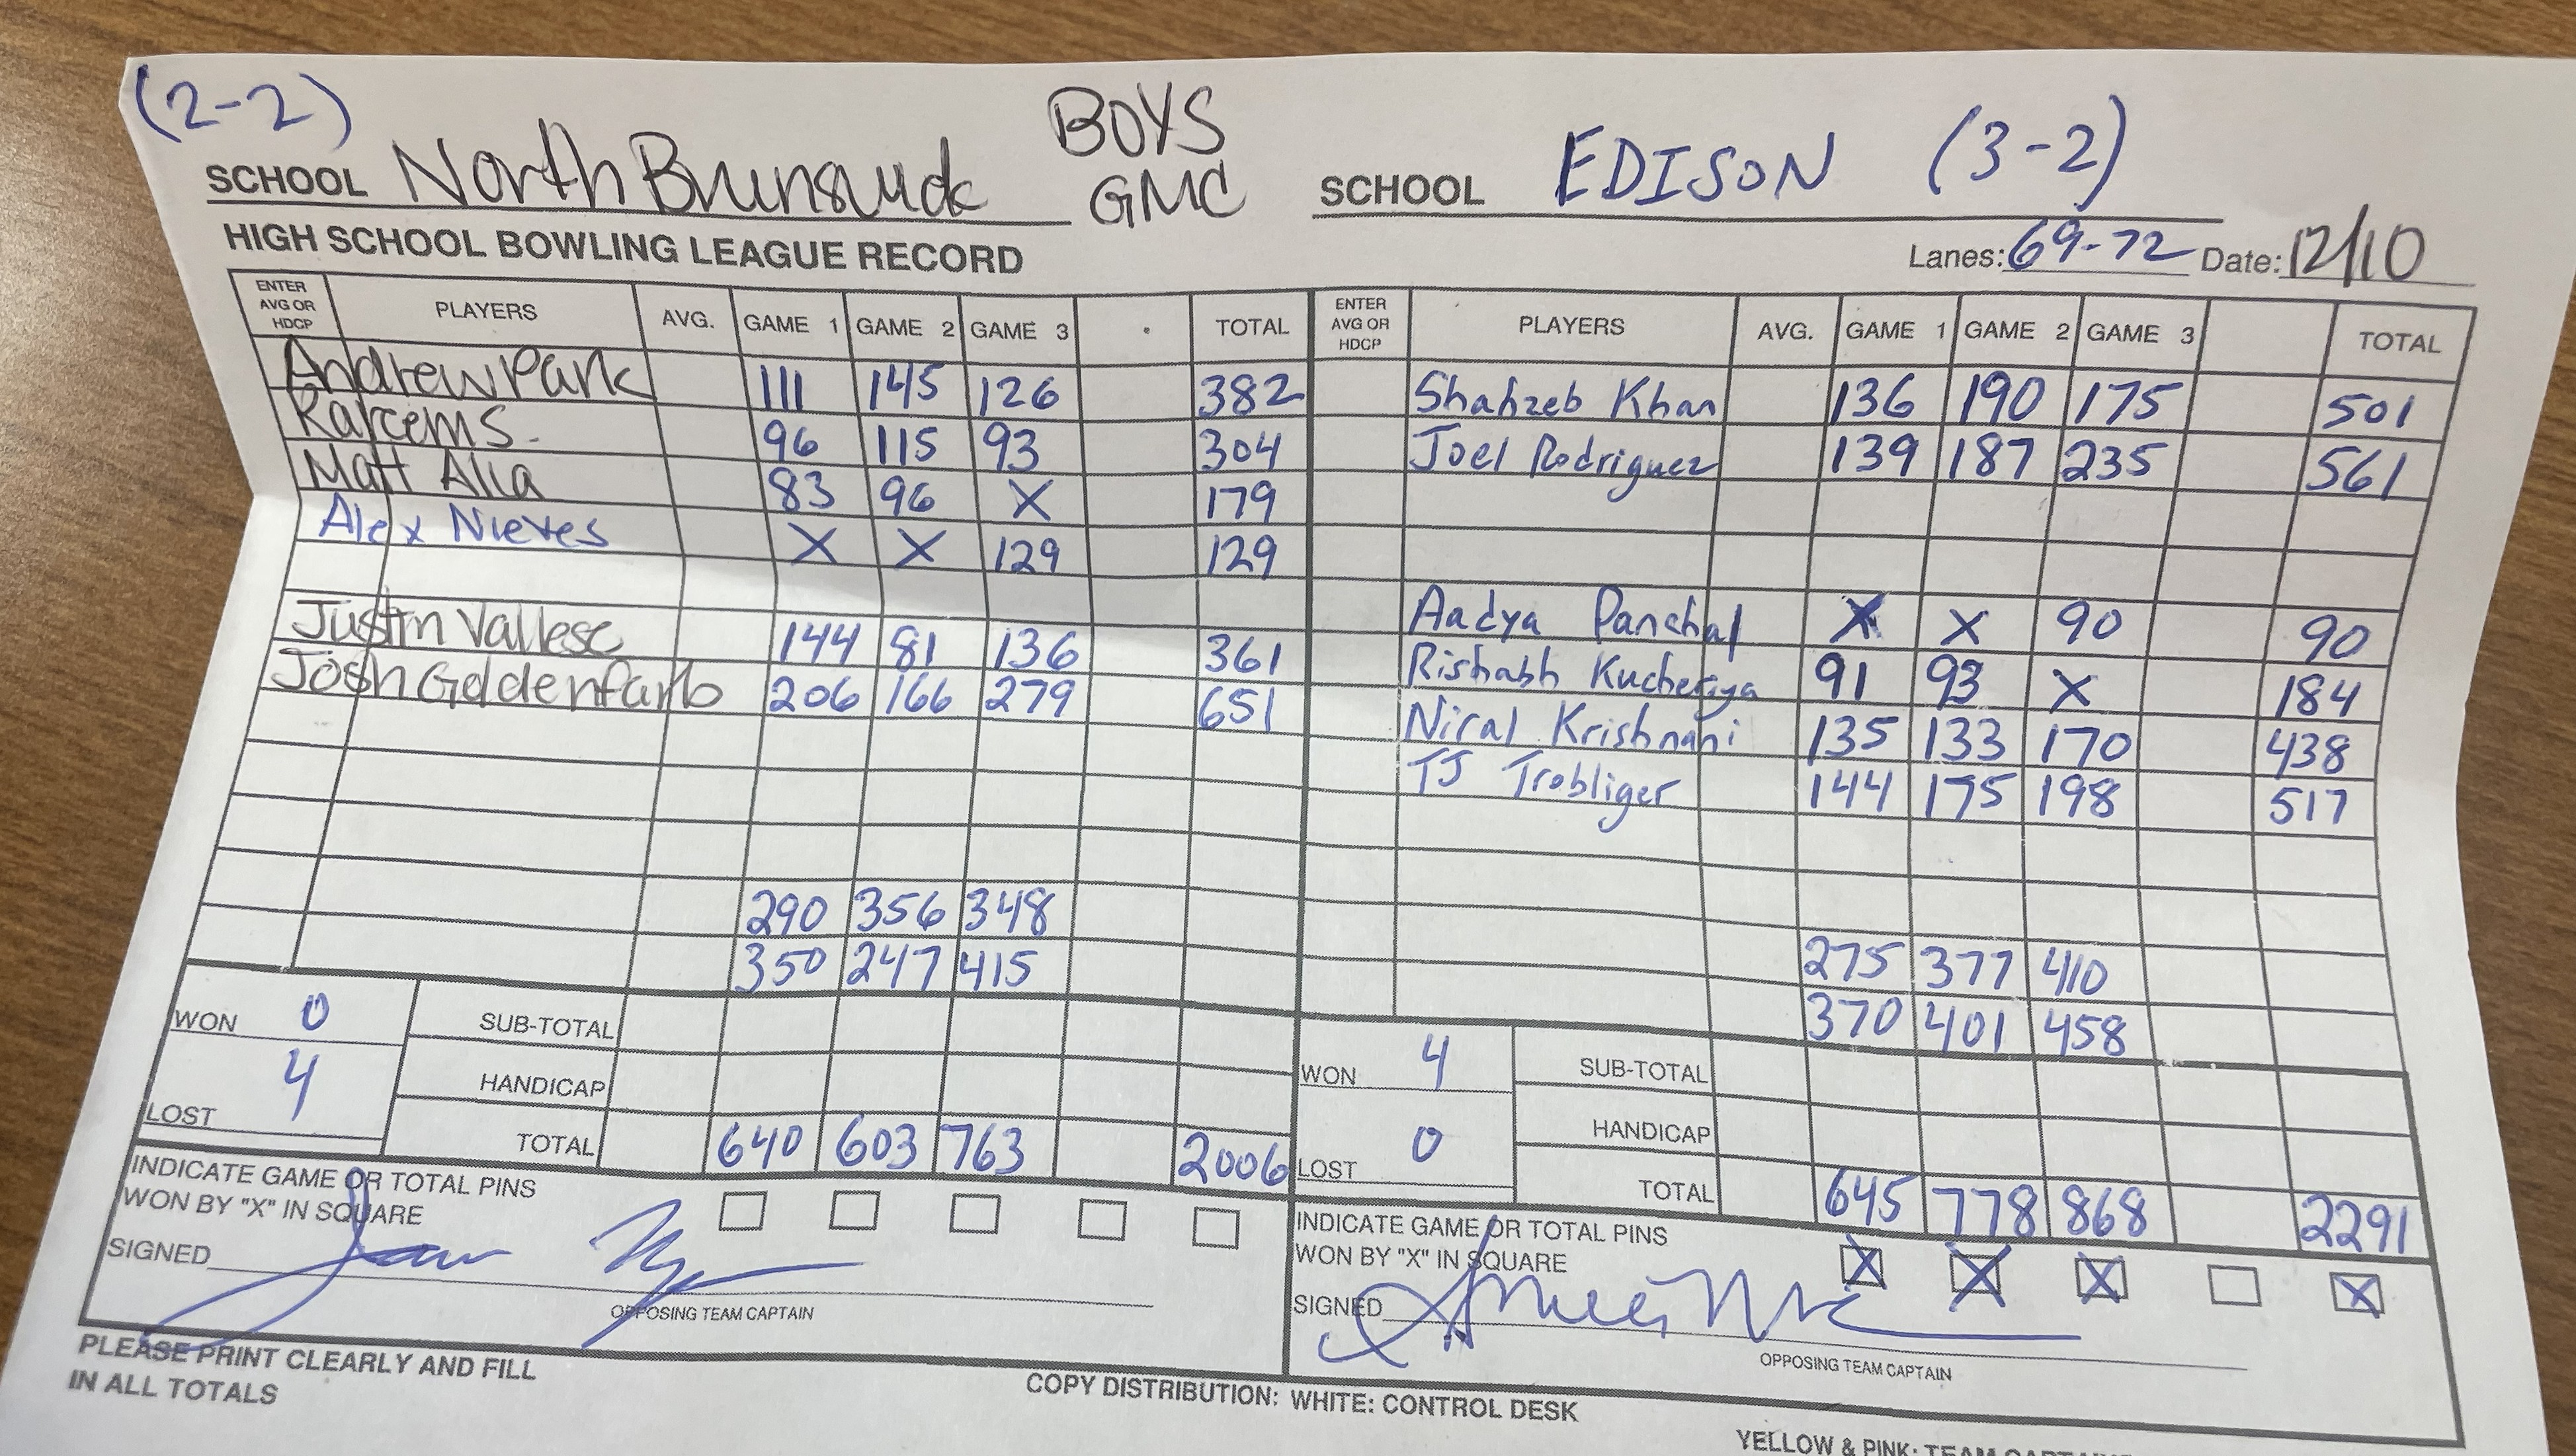 (2-2)
BOYS
SCHOOL North Brunswick GMC SCHOOL EDISON (3-2)
HIGH SCHOOL BOWLING LEAGUE RECORD Lanes: 69-72 Date: 12/10
ENTER AVG OR HDCP PLAYERS AVG. GAME 1 GAME 2 GAME 3 TOTAL ENTER AVG OR HDCP PLAYERS AVG. GAME 1 GAME 2 GAME 3 TOTAL
Andrew Park 111 145 126 382 Shahzeb Khan 136 190 175 501
Kareem S. 96 115 93 304 Joel Rodriguez 139 187 235 561
Matt Alla 83 96 X 179
Alex Nieves X X 129 129
Justin Vallese 144 81 136 361 Aadya Panchal X X 90 90
Josh Goldenfarb 206 166 279 651 Rishabh Kucheriya 91 93 X 184
Niral Krishnani 135 133 170 438
TJ Trobliger 144 175 198 517
290 356 348 275 377 410
350 247 415 370 401 458
WON 0 SUB-TOTAL WON 4 SUB-TOTAL
HANDICAP HANDICAP
LOST 4 TOTAL 640 603 763 2006 LOST 0 TOTAL 645 778 868 2291
INDICATE GAME OR TOTAL PINS INDICATE GAME OR TOTAL PINS
WON BY "X" IN SQUARE WON BY "X" IN SQUARE X X X X
SIGNED SIGNED
OPPOSING TEAM CAPTAIN OPPOSING TEAM CAPTAIN
PLEASE PRINT CLEARLY AND FILL
IN ALL TOTALS
COPY DISTRIBUTION: WHITE: CONTROL DESK
YELLOW & PINK: TEAM